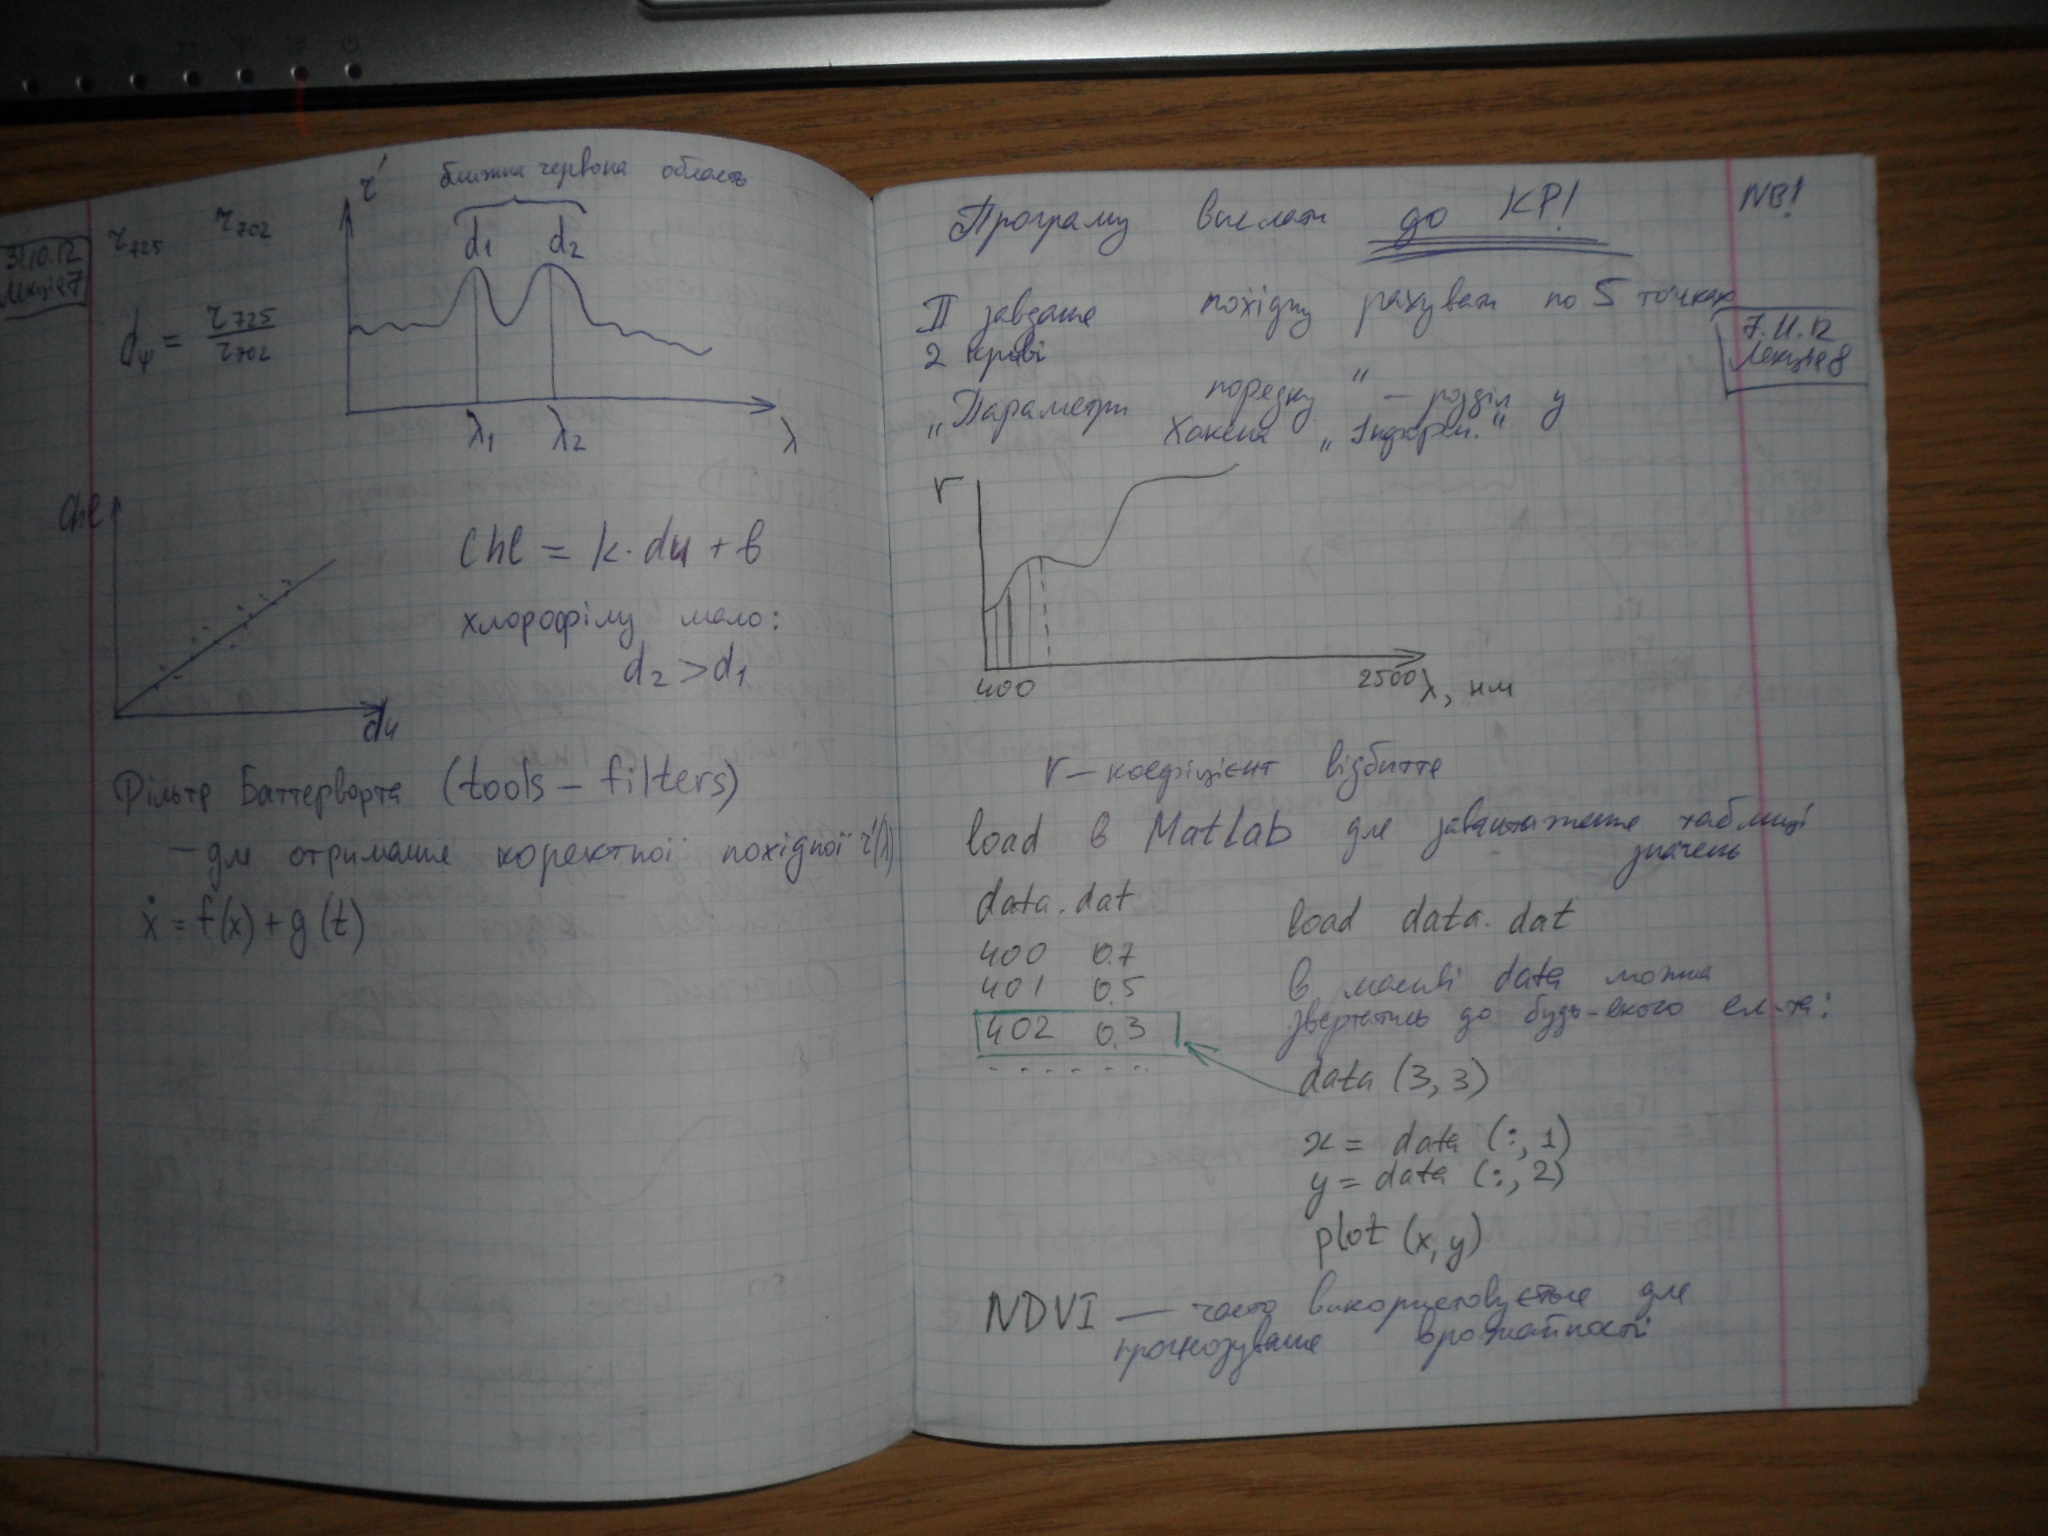 31.10.12
Лекція 7
r725 r702
dψ = r725 / r702
r'
ближня червона область
d1 d2
λ1 λ2 λ
Chl
dч
Chl = k·dч + b
хлорофілу мало:
d2 > d1
Фільтр Баттерворта (tools – filters)
– для отримання коректної похідної r'(λ)
ẋ = f(x) + g(t)
Програму вислати до КР! NB!
7.11.12
Лекція 8
II завдання похідну рахувати по 5 точках
2 криві
„Параметри порядку" – розділ у
Хакена „Інформ."
r
400 2500 λ, нм
r – коефіцієнт відбиття
load в MatLab для завантаження таблиці
значень
data.dat
400 0.7
401 0.5
402 0.3
. . . . . .
load data.dat
в масиві data можна
звертатись до будь-якого ел-та:
data (3, 3)
x = data (:, 1)
y = data (:, 2)
plot (x, y)
NDVI — часто використовується для
прогнозування врожайності